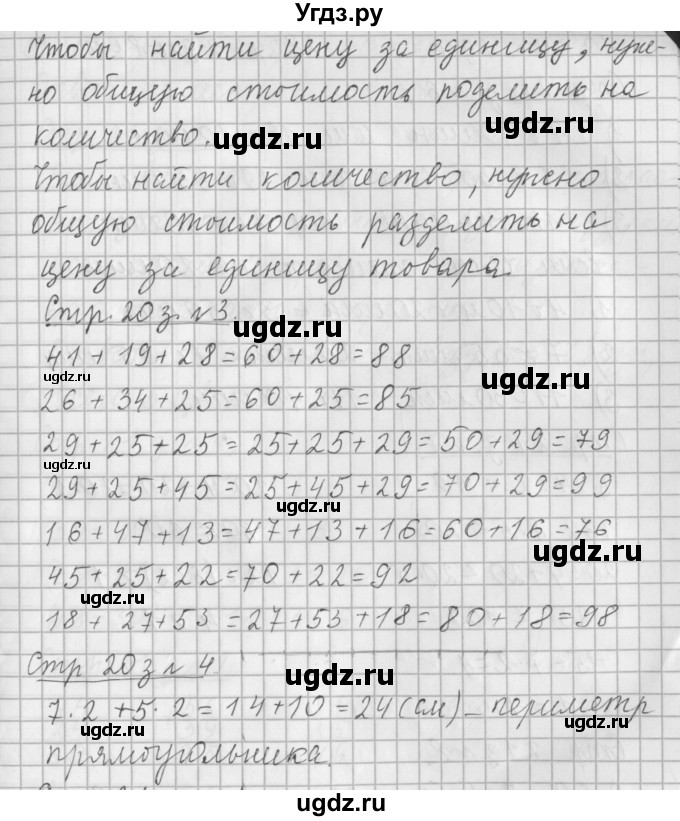 Угдз.ру
Чтобы найти цену за единицу, нуж-
но общую стоимость поделить на
количество.
ugdz.ru
ugdz.ru
Чтобы найти количество, нужно
общую стоимость разделить на
цену за единицу товара.
Стр. 20 з. №3.
ugdz.ru
41 + 19 + 28 = 60 + 28 = 88
ugdz.ru
26 + 34 + 25 = 60 + 25 = 85
ugdz.ru
29 + 25 + 25 = 25 + 25 + 29 = 50 + 29 = 79
ugdz.ru
29 + 25 + 45 = 25 + 45 + 29 = 70 + 29 = 99
ugdz.ru
16 + 47 + 13 = 47 + 13 + 16 = 60 + 16 = 76
ugdz.ru
45 + 25 + 22 = 70 + 22 = 92
ugdz.ru
18 + 27 + 53 = 27 + 53 + 18 = 80 + 18 = 98
Стр 20 з № 4
ugdz.ru
7 · 2 + 5 · 2 = 14 + 10 = 24 (см) – периметр
ugdz.ru
ugdz.ru
прямоугольника.
ugdz.ru